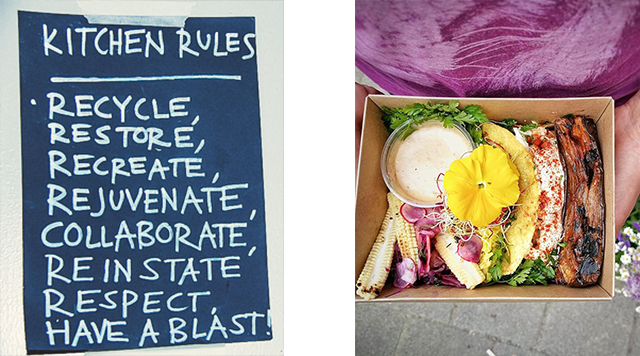 KITCHEN RULES
• RECYCLE,
RESTORE,
RECREATE,
REJUVENATE,
COLLABORATE,
REINSTATE
RESPECT,
HAVE A BLAST!